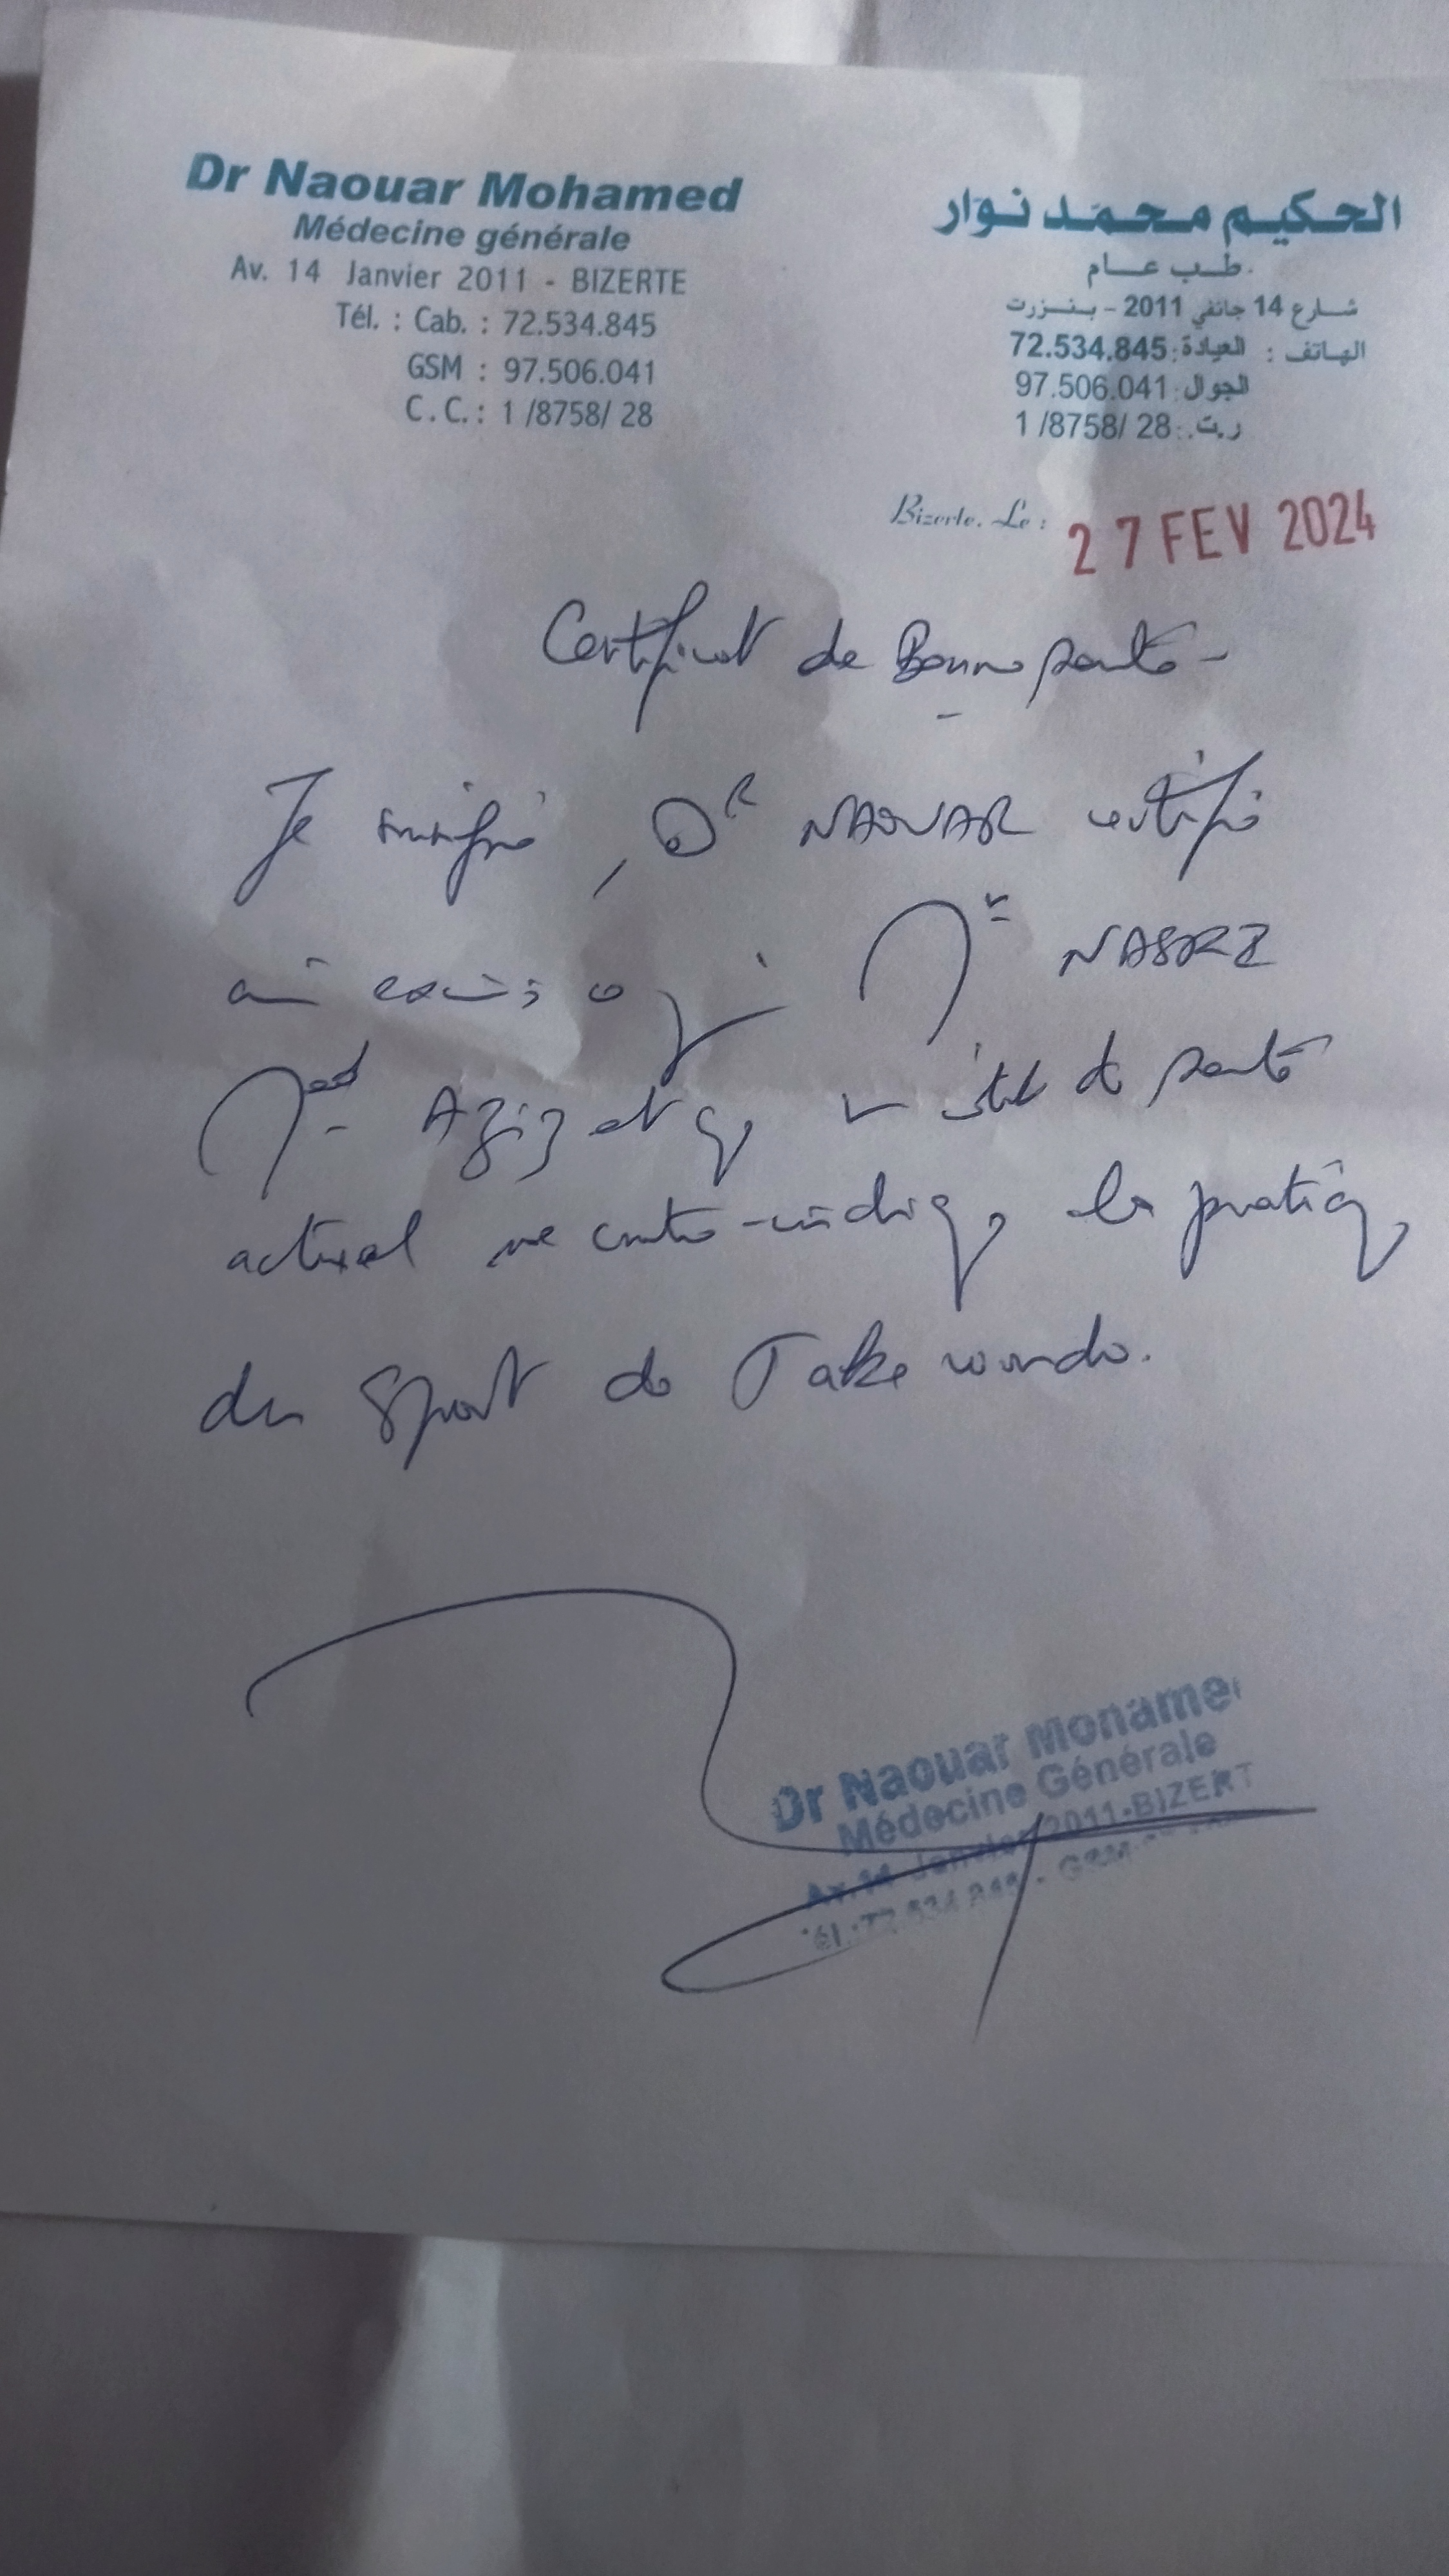 Dr Naouar Mohamed
Médecine générale
Av. 14 Janvier 2011 - BIZERTE
Tél. : Cab. : 72.534.845
GSM : 97.506.041
C.C. : 1 /8758/ 28
الحكيم محمّد نوّار
طب عام
شارع 14 جانفي 2011 - بنزرت
الهاتف : العيادة : 72.534.845
الجوال : 97.506.041
ر.ت. : 1 /8758/ 28
Bizerte, Le : 27 FEV 2024
Certificat de Bonne santé -
Je soussigné, Dr NAOUAR certifie
Mr
Med Aziz et que état de santé
actuel ne contre-indique la pratique
du Sport de Takewondo.
Dr Naouar Mohamed
Médecine Générale
Av. 14 Janvier 2011-BIZERT
Tél.:72.534.845 - GSM